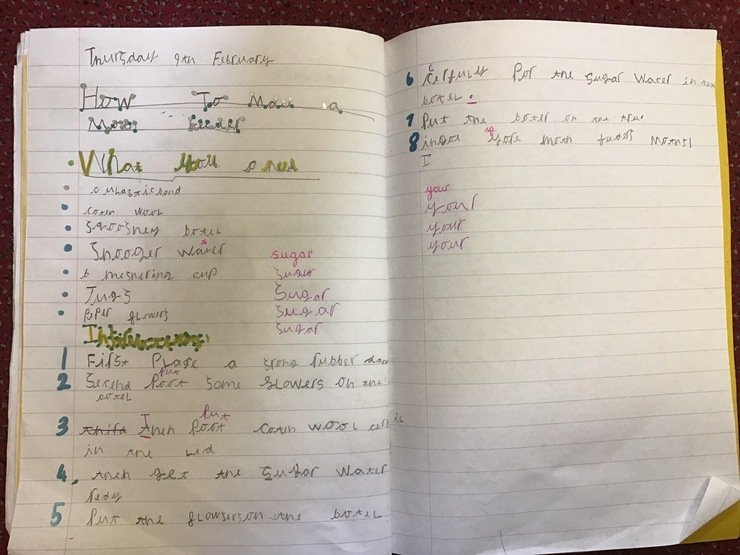 Thursday 9th February
How To Make a
Moth feeder
What Youll need
a elastic band
coten wool
botel
Shooger water
a mesnering cup
Jugs
piper flowers
sugar
suger
Sugar
sugar
sugar
1 First Place a srong rubber
2 Second Poot put some flowers on the
botel
3 third Then Poot put coten wool
in the Lid
4. then get the Sugar Water
redy
5 Put the flowsers on the botel
6 cerfuly Por the Sugar Water in the
botel.
7 Put the botel on the tree
8 moth moths!
I
your
your
your
your